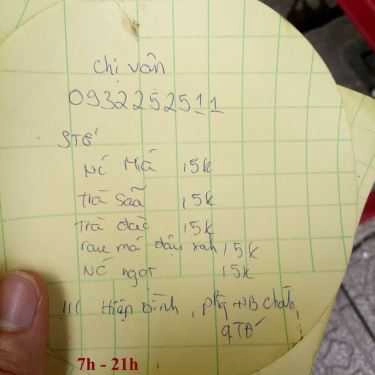 Chị Vân
0932252511
STĐ
Nc Mía 15k
Trà sâm 15k
Trà đác 15k
rau má đậu xanh 15k
Nc ngọt 15k
111 Hiệp Bình, phg HB Chánh,
QTĐ
7h - 21h